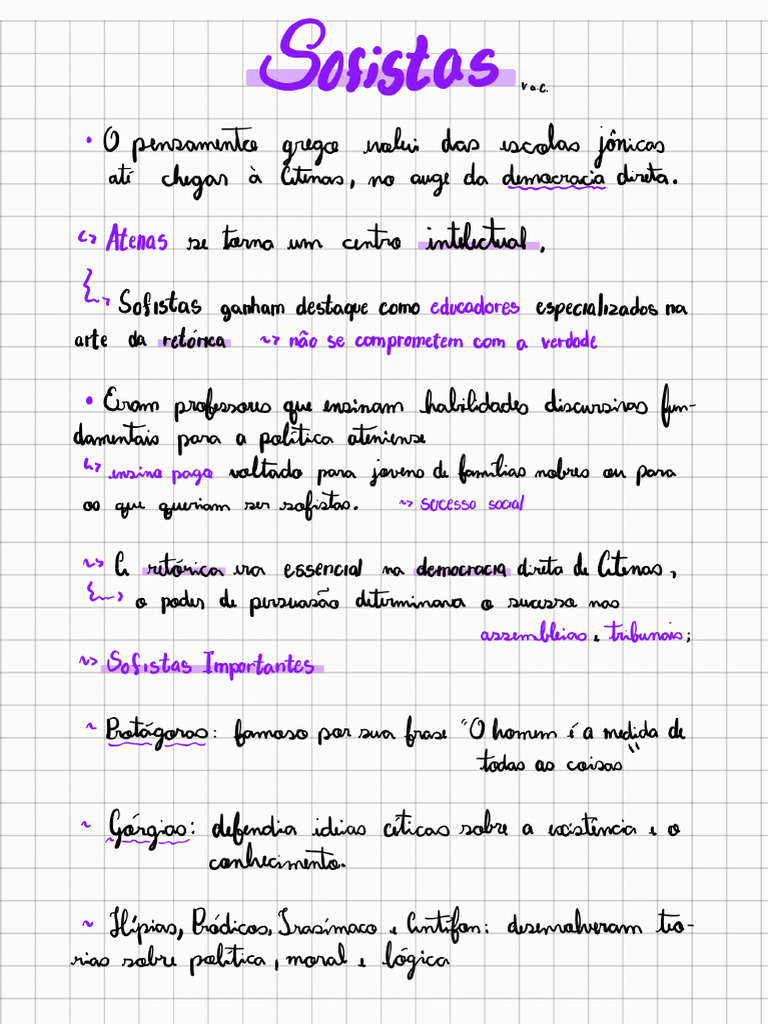 Sofistas v.a.C.
• O pensamento grego evolui das escolas jônicas
até chegar à Atenas, no auge da democracia direta.
↳ Atenas se torna um centro intelectual.
↳ Sofistas ganham destaque como educadores especializados na
arte da retórica ~> não se comprometem com a verdade
• Eram professores que ensinam habilidades discursivas fun-
damentais para a política ateniense
↳ ensino pago voltado para jovens de famílias nobres ou para
os que queriam ser sofistas. ~> sucesso social
~> A retórica era essencial na democracia direta de Atenas,
~> o poder de persuasão determinava o sucesso nas
assembleias e tribunais;
~> Sofistas Importantes
~ Protágoras: famoso por sua frase "O homem é a medida de
todas as coisas"
~ Górgias: defendia ideias céticas sobre a existência e o
conhecimento.
~ Hípias, Pródicos, Trasímaco e Antífon: desenvolveram teo-
rias sobre política, moral e lógica